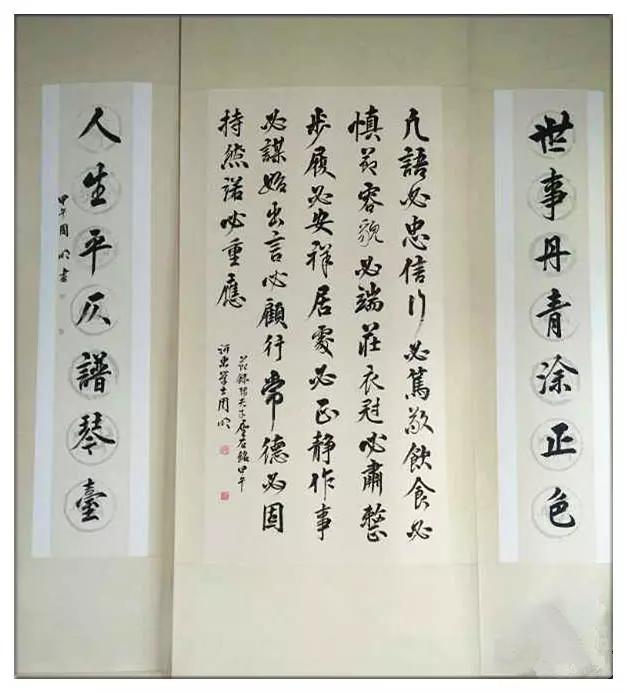 世事丹青涂正色
凡語必忠信行必篤敬飲食必
慎節容貌必端莊衣冠必肅整
步履必安祥居處必正静作事
必謀始出言必顧行常德必固
持然諾必重應
節錄張夫子座右銘甲午
學士周明
人生平仄譜琴臺
甲午周明書